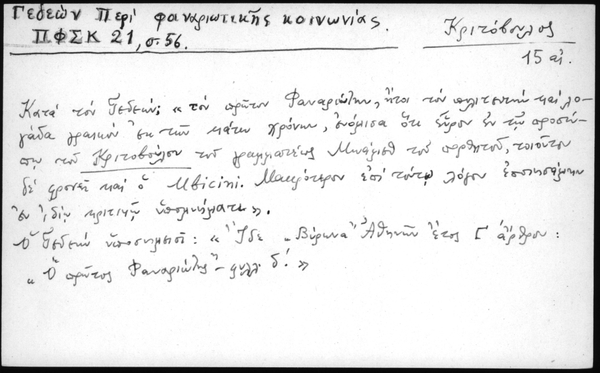 Γεδεών Περί φαναριωτικῆς κοινωνίας.
ΠΦΣΚ 21, σ. 56.
Κριτόβουλος
15 αἰ.
Κατά τόν Γεδεών; «τόν πρῶτον Φαναριώτην, ἤτοι τόν πολιτευτήν καί λο-
γάδα γραικόν ἐκ τῶν κάτω χρόνων, ἐνόμισα ὅτι εὗρον ἐν τῷ προσώ-
πῳ τοῦ Κριτοβούλου τοῦ γραμματέως Μωάμεθ τοῦ πορθητοῦ, τοιοῦτον
δέ φρονεῖ καί ὁ Ubicini. Μακρότερον ἐπί τούτῳ λόγον ἐποιησάμην
ἐν ἰδίῳ κριτικῷ ὑπομνήματι».
Ὁ Γεδεών ὑποσημειοῖ: «Ἴδε "Βύρωνα" Ἀθηνῶν ἔτος Γ' ἄρθρον:
«Ὁ πρῶτος Φαναριώτης" – φυλλ. δ'.»